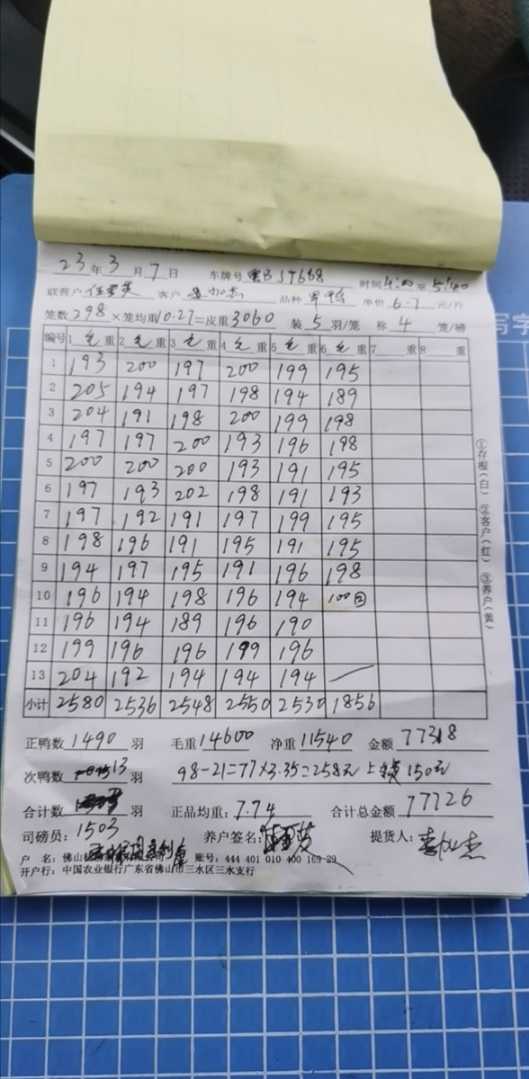 23年3月7日 车牌号 59668 时间4:00至5:40
联营户 客户 品种 单价 6.7 元/斤
笼数298×笼均重10.27=皮重3060 装5羽/笼 称4笼/磅
编号 1毛重 2毛重 3毛重 4毛重 5毛重 6毛重 7重 8重
1 193 200 197 200 199 195
2 205 194 197 198 194 189
3 204 191 198 200 199 198
4 197 197 200 193 196 198
5 200 200 200 193 191 195
6 197 193 202 198 191 193
7 197 192 191 197 199 195
8 198 196 191 195 191 195
9 194 197 195 191 196 198
10 196 194 198 196 194 100
11 196 194 189 196 190
12 199 196 196 199 196
13 204 192 194 194 194
小计 2580 2536 2548 2550 2530 1856
正鸭数1490羽 毛重14600 净重11540 金额77318
次鸭数13羽 98-21=77×3.35=258元 150元
合计数 羽 正品均重:7.74 合计总金额77726
司磅员:1503 养户签名: 提货人:
户 名:佛山 账号:444 401 010 400 169 29
开户行:中国农业银行广东省佛山市三水区三水支行
①存根(白) ②客户(红) ③养户(黄)